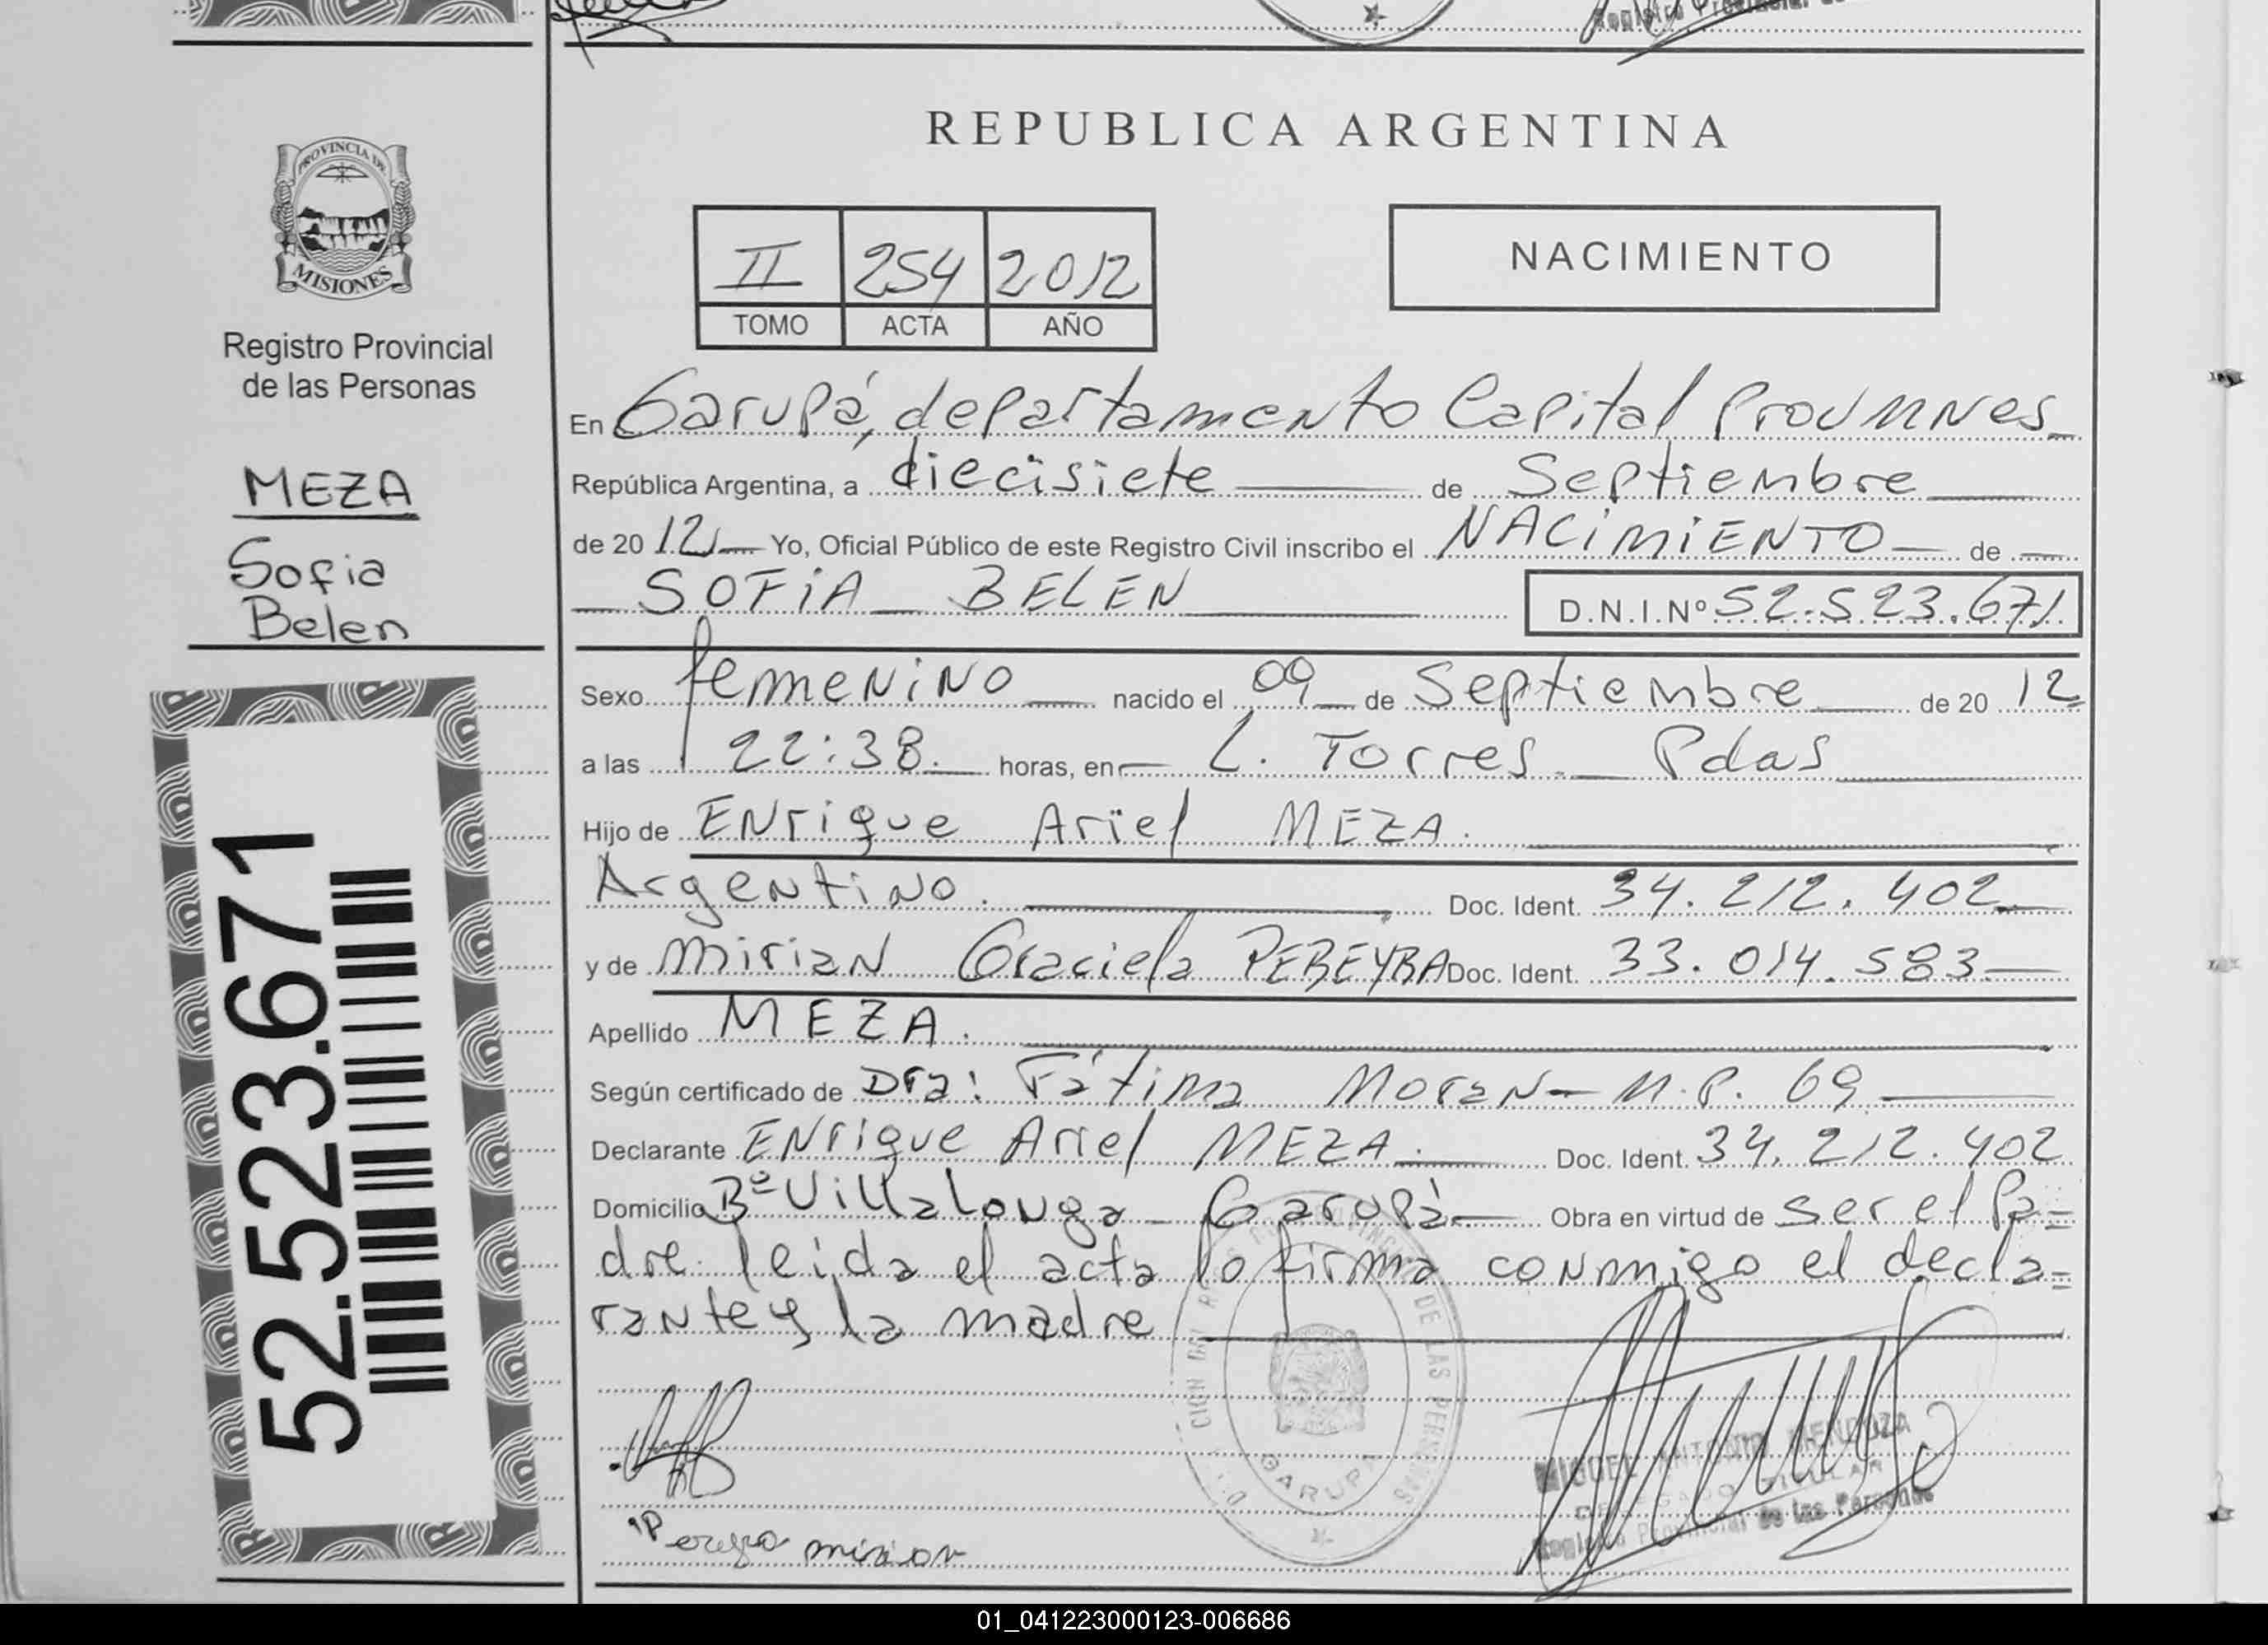 Registro Provincial de
REPUBLICA ARGENTINA
PROVINCIA DE
MISIONES
Registro Provincial
de las Personas
MEZA
Sofia
Belen
52.523.671
II 254 2012
TOMO ACTA AÑO
NACIMIENTO
En Garupá, departamento Capital Prov Mnes
República Argentina, a diecisiete de Septiembre
de 20 12 Yo, Oficial Público de este Registro Civil inscribo el NACIMIENTO de
SOFIA BELEN D.N.I.Nº 52.523.671
Sexo femenino nacido el 09 de Septiembre de 20 12
a las 22:38. horas, en L. Torres Pdas
Hijo de Enrique Ariel MEZA.
Argentino. Doc. Ident. 34.212.402
y de Mirian Graciela PEREYRA Doc. Ident. 33.014.583
Apellido MEZA.
Según certificado de Dra: Fátima Moran - M.P. 69
Declarante Enrique Ariel MEZA. Doc. Ident. 34.212.402
Domicilio Bº Villalonga - Garupá Obra en virtud de ser el Pa=
dre. leida el acta lo firma conmigo el decla=
rante y la madre
DE LAS PERSONAS
GARUPA
MIGUEL ANTONIO MENDOZA
DELEGADO TITULAR
Registro Provincial de las Personas
01_041223000123-006686